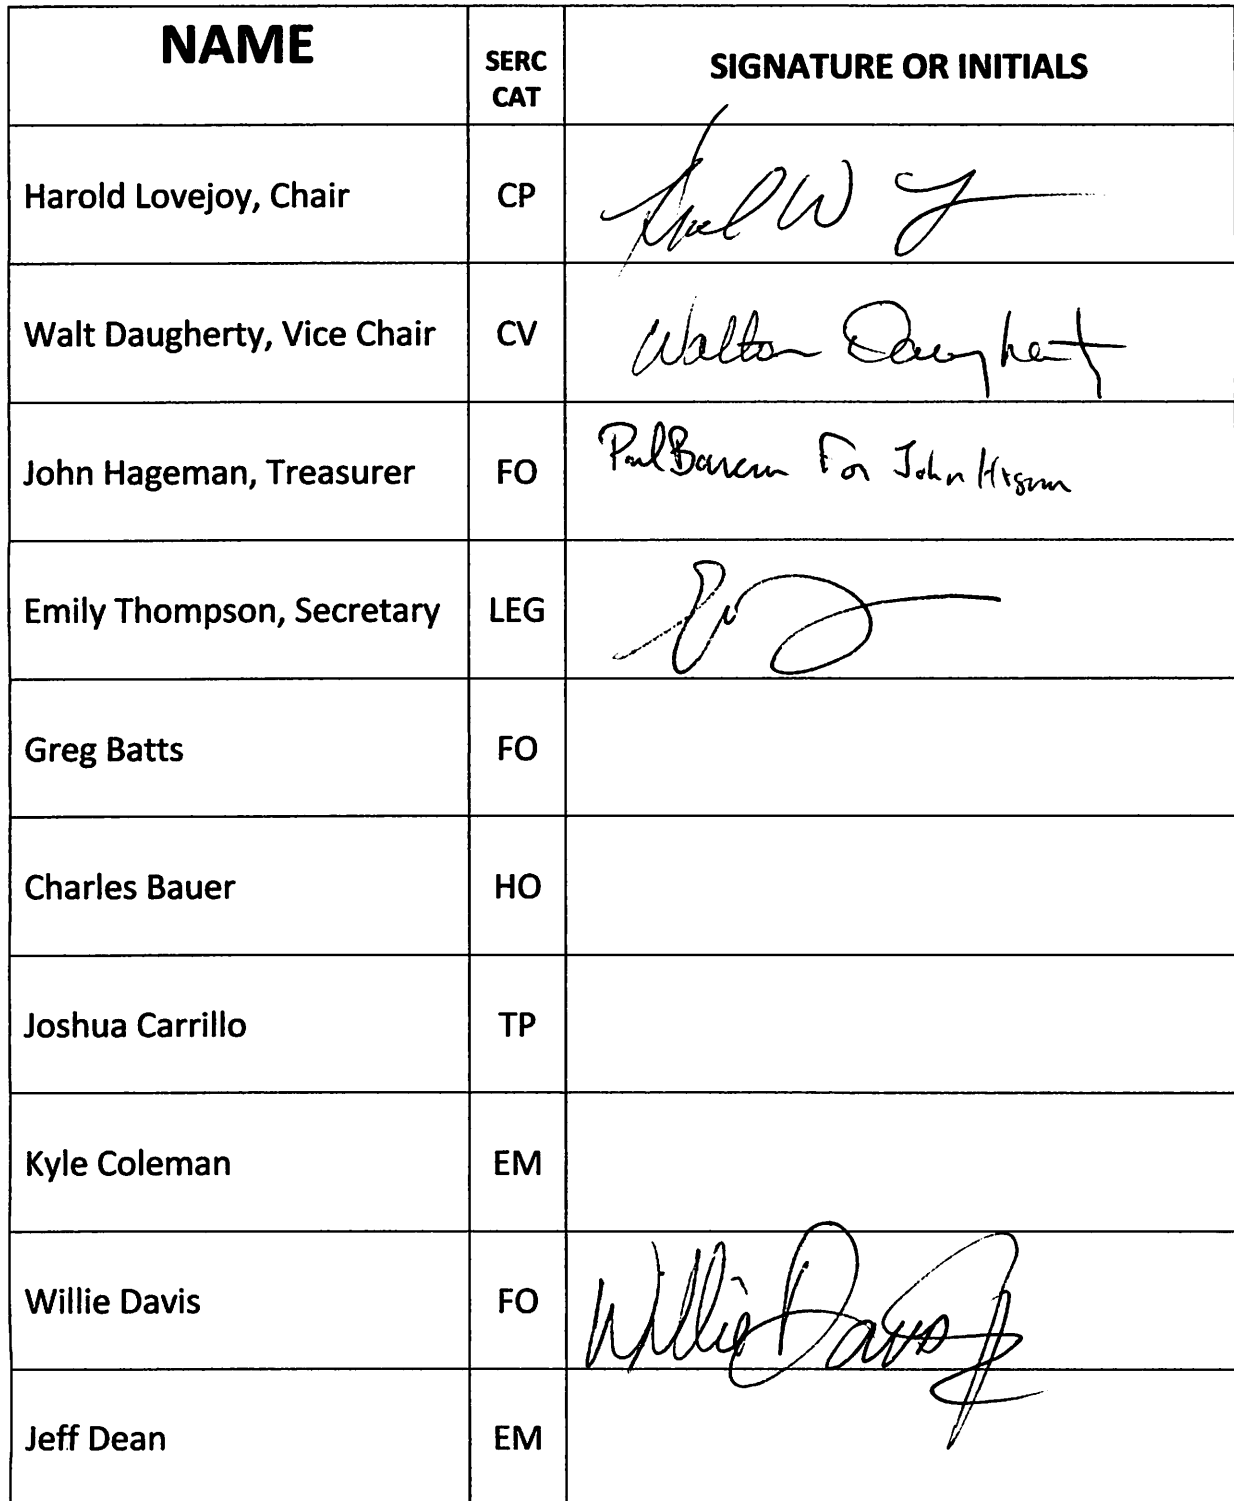 NAME SERC CAT SIGNATURE OR INITIALS
Harold Lovejoy, Chair CP
Walt Daugherty, Vice Chair CV Walton Daugherty
John Hageman, Treasurer FO Paul For John
Emily Thompson, Secretary LEG
Greg Batts FO
Charles Bauer HO
Joshua Carrillo TP
Kyle Coleman EM
Willie Davis FO Willie Davis
Jeff Dean EM